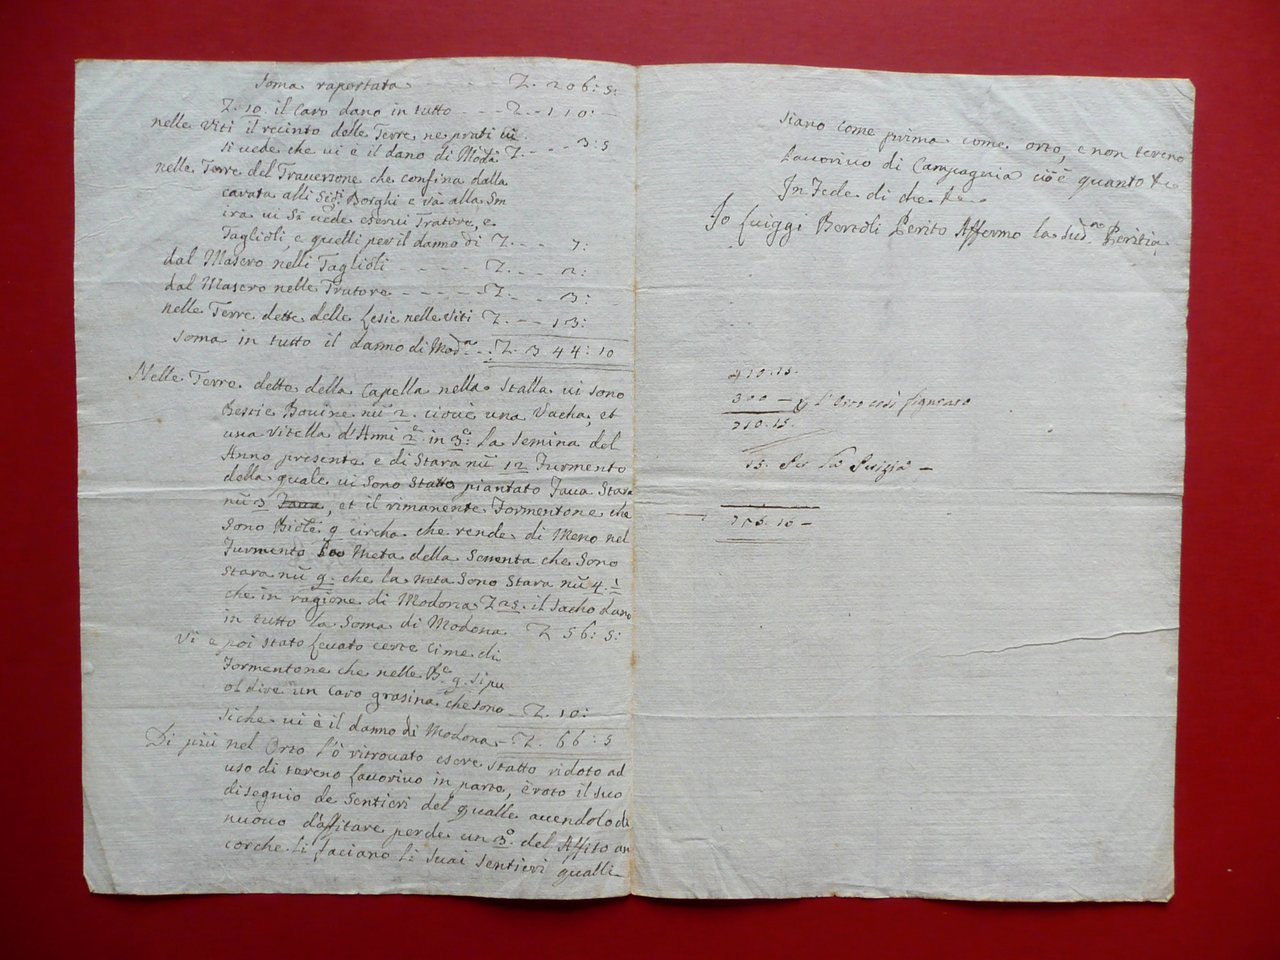 Soma raportata - - - - Z. 206:5:
Z. 10. il Caro dano in tutto - - Z - 110: -
nelle Viti il recinto delle Terre ne prati ui
si uede che ui è il dano di Moda Z. - - - 3:5
nelle Terre del Trauersone che confina dalla
cavata alli Sig.ri Borghi e và alla Sm
ira ui si uede eserui Tratore, e
Taglioli, e quelli per il danno di Z. - - 7:
dal Masero nelli Taglioli - - - - Z. - - 2:
dal Masero nelle Tratore - - - - - Z. - - 3:
nelle Terre dette delle Lesie nelle Viti Z. - - 13:
Soma in tutto il danno di Mod.na - . Z. 344:10
Nelle Terre dette della Capella nella Stalla ui sono
Bestie Bouine nū 2. cioue una Vacha, et
una Vitella d'Anni 2. in 3: La Semina del
Anno presente e di Stara nū 12 Furmento
della quale ui Sono Statto piantato Faua Stara
nū 3 Faua, et il rimanente Formentone che
Sono Biolc 9 circha che rende di Meno nel
Furmento Meta della Sementa che Sono
Stara nū 9. che la Meta Sono Stara nū 4.
che in ragione di Modona Z 25. il Sacho dano
in tutto la Soma di Modona Z 56:5:
Vi è poi stato Leuato certe Cime di
Formentone che nelle B.e 9. si pu
ol dire un Caro grasina che sono - Z. 10:
siche ui è il danno di Modona - Z. 66:5
Di più nel Orto l'ò ritrouato esere statto ridoto ad
uso di tereno Lauoriuo in parte, è roto il suo
disegnio de Sentieri del qualle auendolo di
nuouo d'affitare perde un 3.o del Affito an
corche si faciano li suoi sentieri qualli
siano come prima come orto, e non tereno
Lauoriuo di Campagnia cioè quanto &c
In Fede di che &c.
Io Luiggi Bertoli Perito Affermo la sud.a Peritia
410.15.
300 - p l'Orto così
710.15.
15. Per la Perizia -
755.10 -